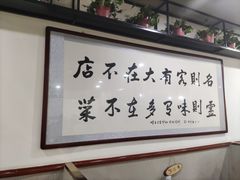 店不在大有客則名
菜不在多写味則靈